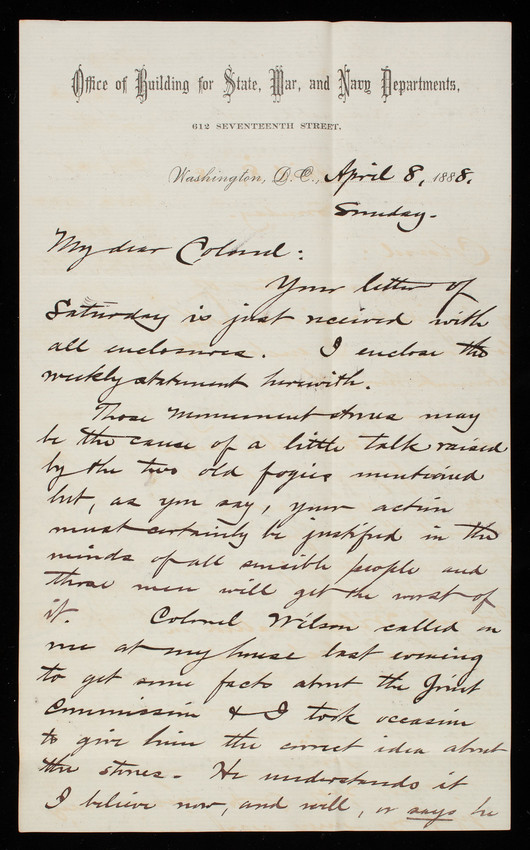 Office of Building for State, War, and Navy Departments,
612 SEVENTEENTH STREET.
Washington, D. C., April 8, 1888.
Sunday.
My dear Colonel:
Your letter of
Saturday is just received with
all enclosures. I enclose the
weekly statement herewith.
Those Monument stones may
be the cause of a little talk raised
by the two old fogies mentioned
but, as you say, your action
must certainly be justified in the
minds of all sensible people and
those men will get the worst of
it. Colonel Wilson called on
me at my house last evening
to get some facts about the Joint
Commission & I took occasion
to give him the correct idea about
the stones. He understands it
I believe now, and will, or says he